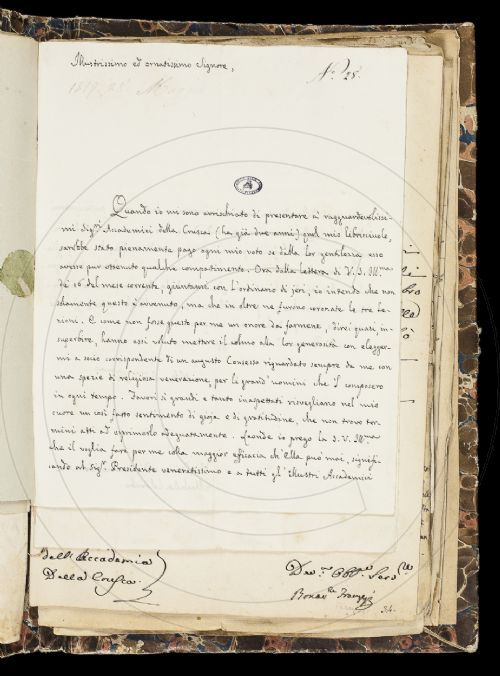 Illustrissimo ed ornatissimo Signore,
N.º 28.
Quando io mi sono arrischiato di presentare a' ragguardevolissi-
mi Sig.ri Accademici della Crusca (ha già due anni) quel mio libricciuolo,
sarebbe stato pienamente pago ogni mio voto se dalla lor gentilezza esso
avesse pur ottenuto qualche compatimento. Ora dalla lettera di V. S. Ill.ma
de' 16 del mese corrente, giuntami con l'ordinario di jeri, io intendo che non
solamente questo è avvenuto, ma che in oltre ne furono onorate le tre le-
zioni. E come non fosse questo per me un onore da farmene, direi quasi in-
superbire, hanno essi voluto mettere il colmo alla lor generosità con elegger-
mi a socio corrispondente di un augusto Consesso riguardato sempre da me con
una spezie di religiosa venerazione, per le grand' uomini che l composero
in ogni tempo. Favori sì grandi e tanto inaspettati risvegliano nel mio
cuore un così fatto sentimento di gioja e di gratitudine, che non trovo ter-
mini atti ad esprimerlo adeguatamente. Laonde io prego la S. V. Ill.ma
che il voglia fare per me colla maggior efficacia ch'Ella può mai, signifi-
cando al Sig.r Presidente veneratissimo e a tutti gl' Illustri Accademici
dell' Accademia
Della Crusca.
Dev.mo Obb.mo Serv.re
34.